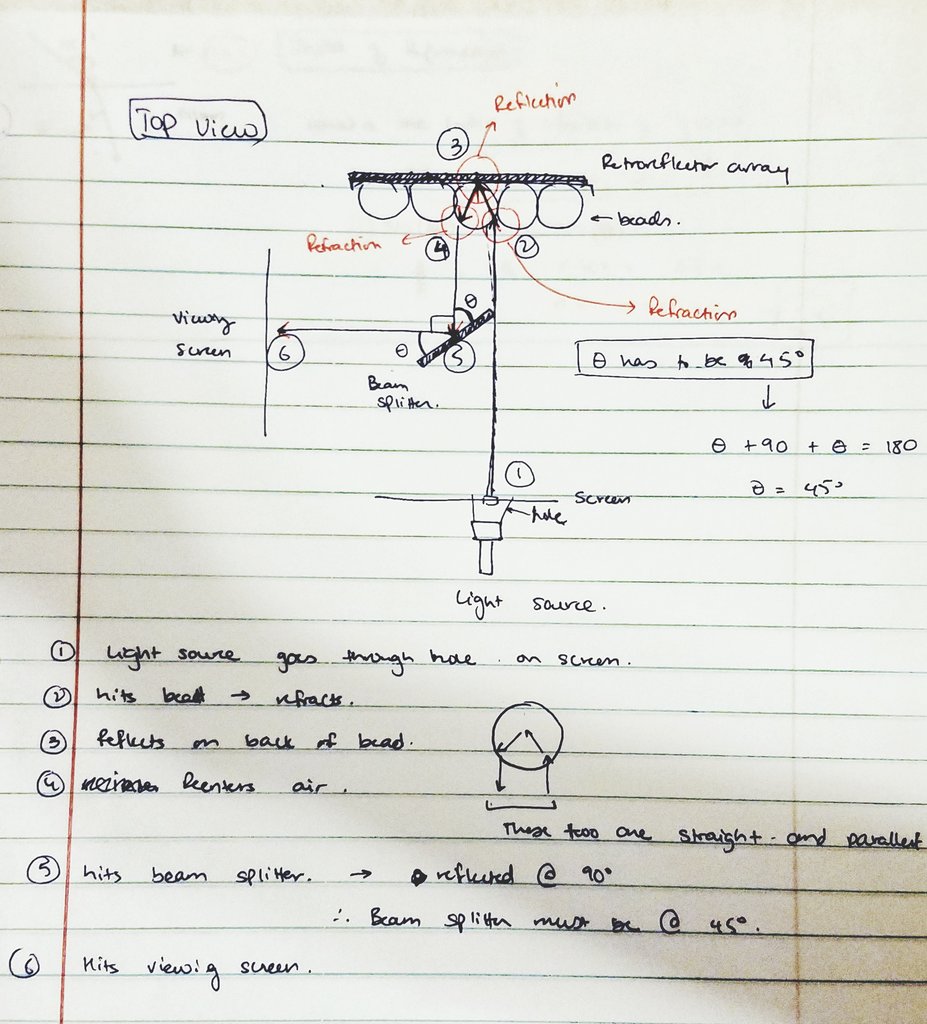 TOP VIEW
Reflection
③
Retroreflector array
← beads.
Refraction
④
②
Refraction
θ
Viewing
screen
⑥
θ
⑤
θ has to be 45°
Beam
splitter.
θ + 90 + θ = 180
θ = 45°
①
Screen
hole
Light source.
① Light source goes through hole on screen.
② hits bead → refracts.
③ Reflects on back of bead.
④ Reenters air.
These two are straight and parallel
⑤ hits beam splitter. → reflected @ 90°
∴ Beam splitter must be @ 45°.
⑥ Hits viewig screen.